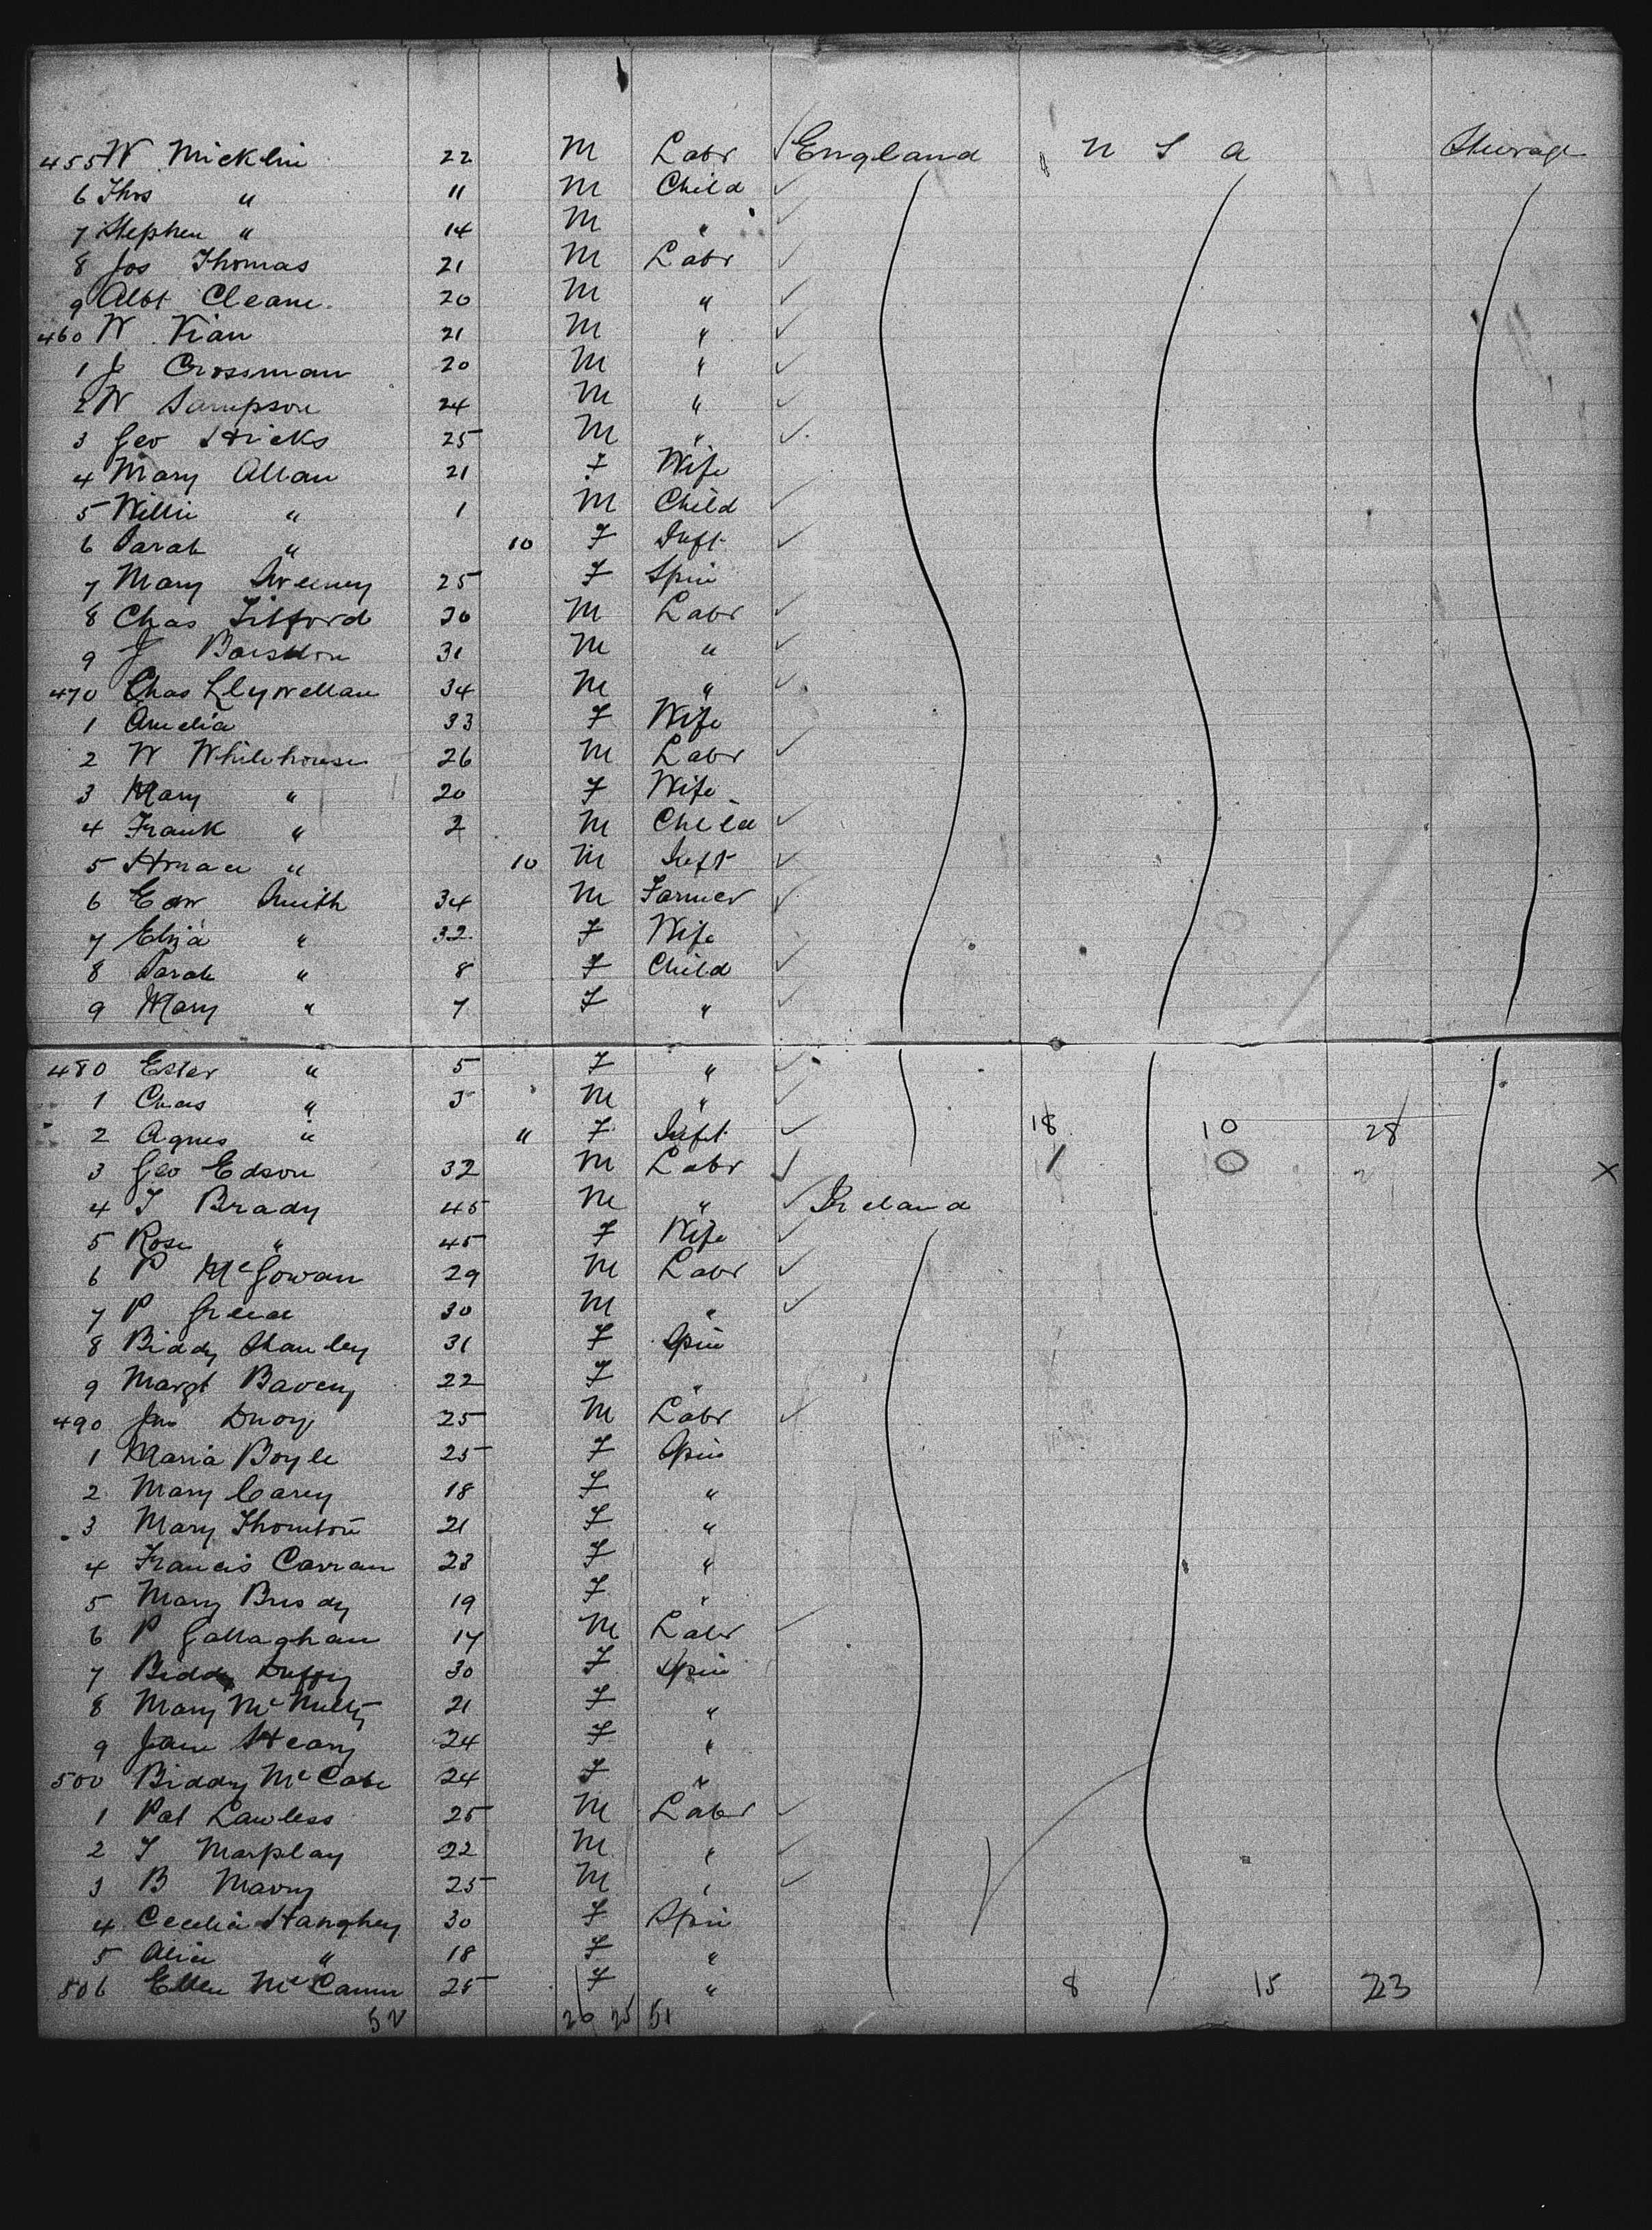 455 W. Micklin 22 M Labr ✓ England U S A Steerage
6 Thos " 11 M Child ✓
7 Stephen " 14 M " ✓
8 Jos Thomas 21 M Labr ✓
9 Albt Cleam 20 M " ✓
460 W. Vian 21 M " ✓
1 J Crossman 20 M " ✓
2 W Sampson 24 M " ✓
3 Geo Hicks 25 M " ✓
4 Mary Allan 21 F Wife
5 Willie " 1 M Child ✓
6 Sarah " 10 F Inft ✓
7 Mary Sweeney 25 F Spin
8 Chas Titford 30 M Labr ✓
9 J 31 M " ✓
470 Chas Llywellan 34 M " ✓
1 Amelia 33 F Wife
2 W Whitehouse 26 M Labr ✓
3 Mary " 20 F Wife
4 Frank " 2 M Child ✓
5 Horace " 10 M Inft ✓
6 Edw Smith 34 M Farmer ✓
7 Eliza " 32 F Wife
8 Sarah " 8 F Child ✓
9 Mary " 7 F " ✓
480 Ester " 5 F " ✓
1 Chas " 3 M " ✓
2 Agnes " " F Inft ✓ 18 10 28
3 Geo Edson 32 M Labr ✓ 1 0 X
4 T Brady 45 M " ✓ Ireland
5 Rose " 45 F Wife ✓
6 P McGowan 29 M Labr ✓
7 P 30 M " ✓
8 Biddy Stanley 31 F Spin
9 Margt Baveny 22 F "
490 Jas Duoy 25 M Labr ✓
1 Maria Boyle 25 F Spin
2 Mary Carey 18 F "
3 Mary Thornton 21 F "
4 Francis Carran 23 F "
5 Mary 19 F "
6 P Gallaghan 17 M Labr ✓
7 Biddy Duffy 30 F Spin
8 Mary McNulty 21 F "
9 Jane Heany 24 F "
500 Biddy McCabe 24 F "
1 Pat Lawless 25 M Labr ✓
2 T Marplay 22 M " ✓
3 B Mavry 25 M " ✓
4 Cecelia Hanghey 30 F Spin
5 Alice " 18 F "
506 Ellen McCann 25 F " 8 15 23
52 26 25 51